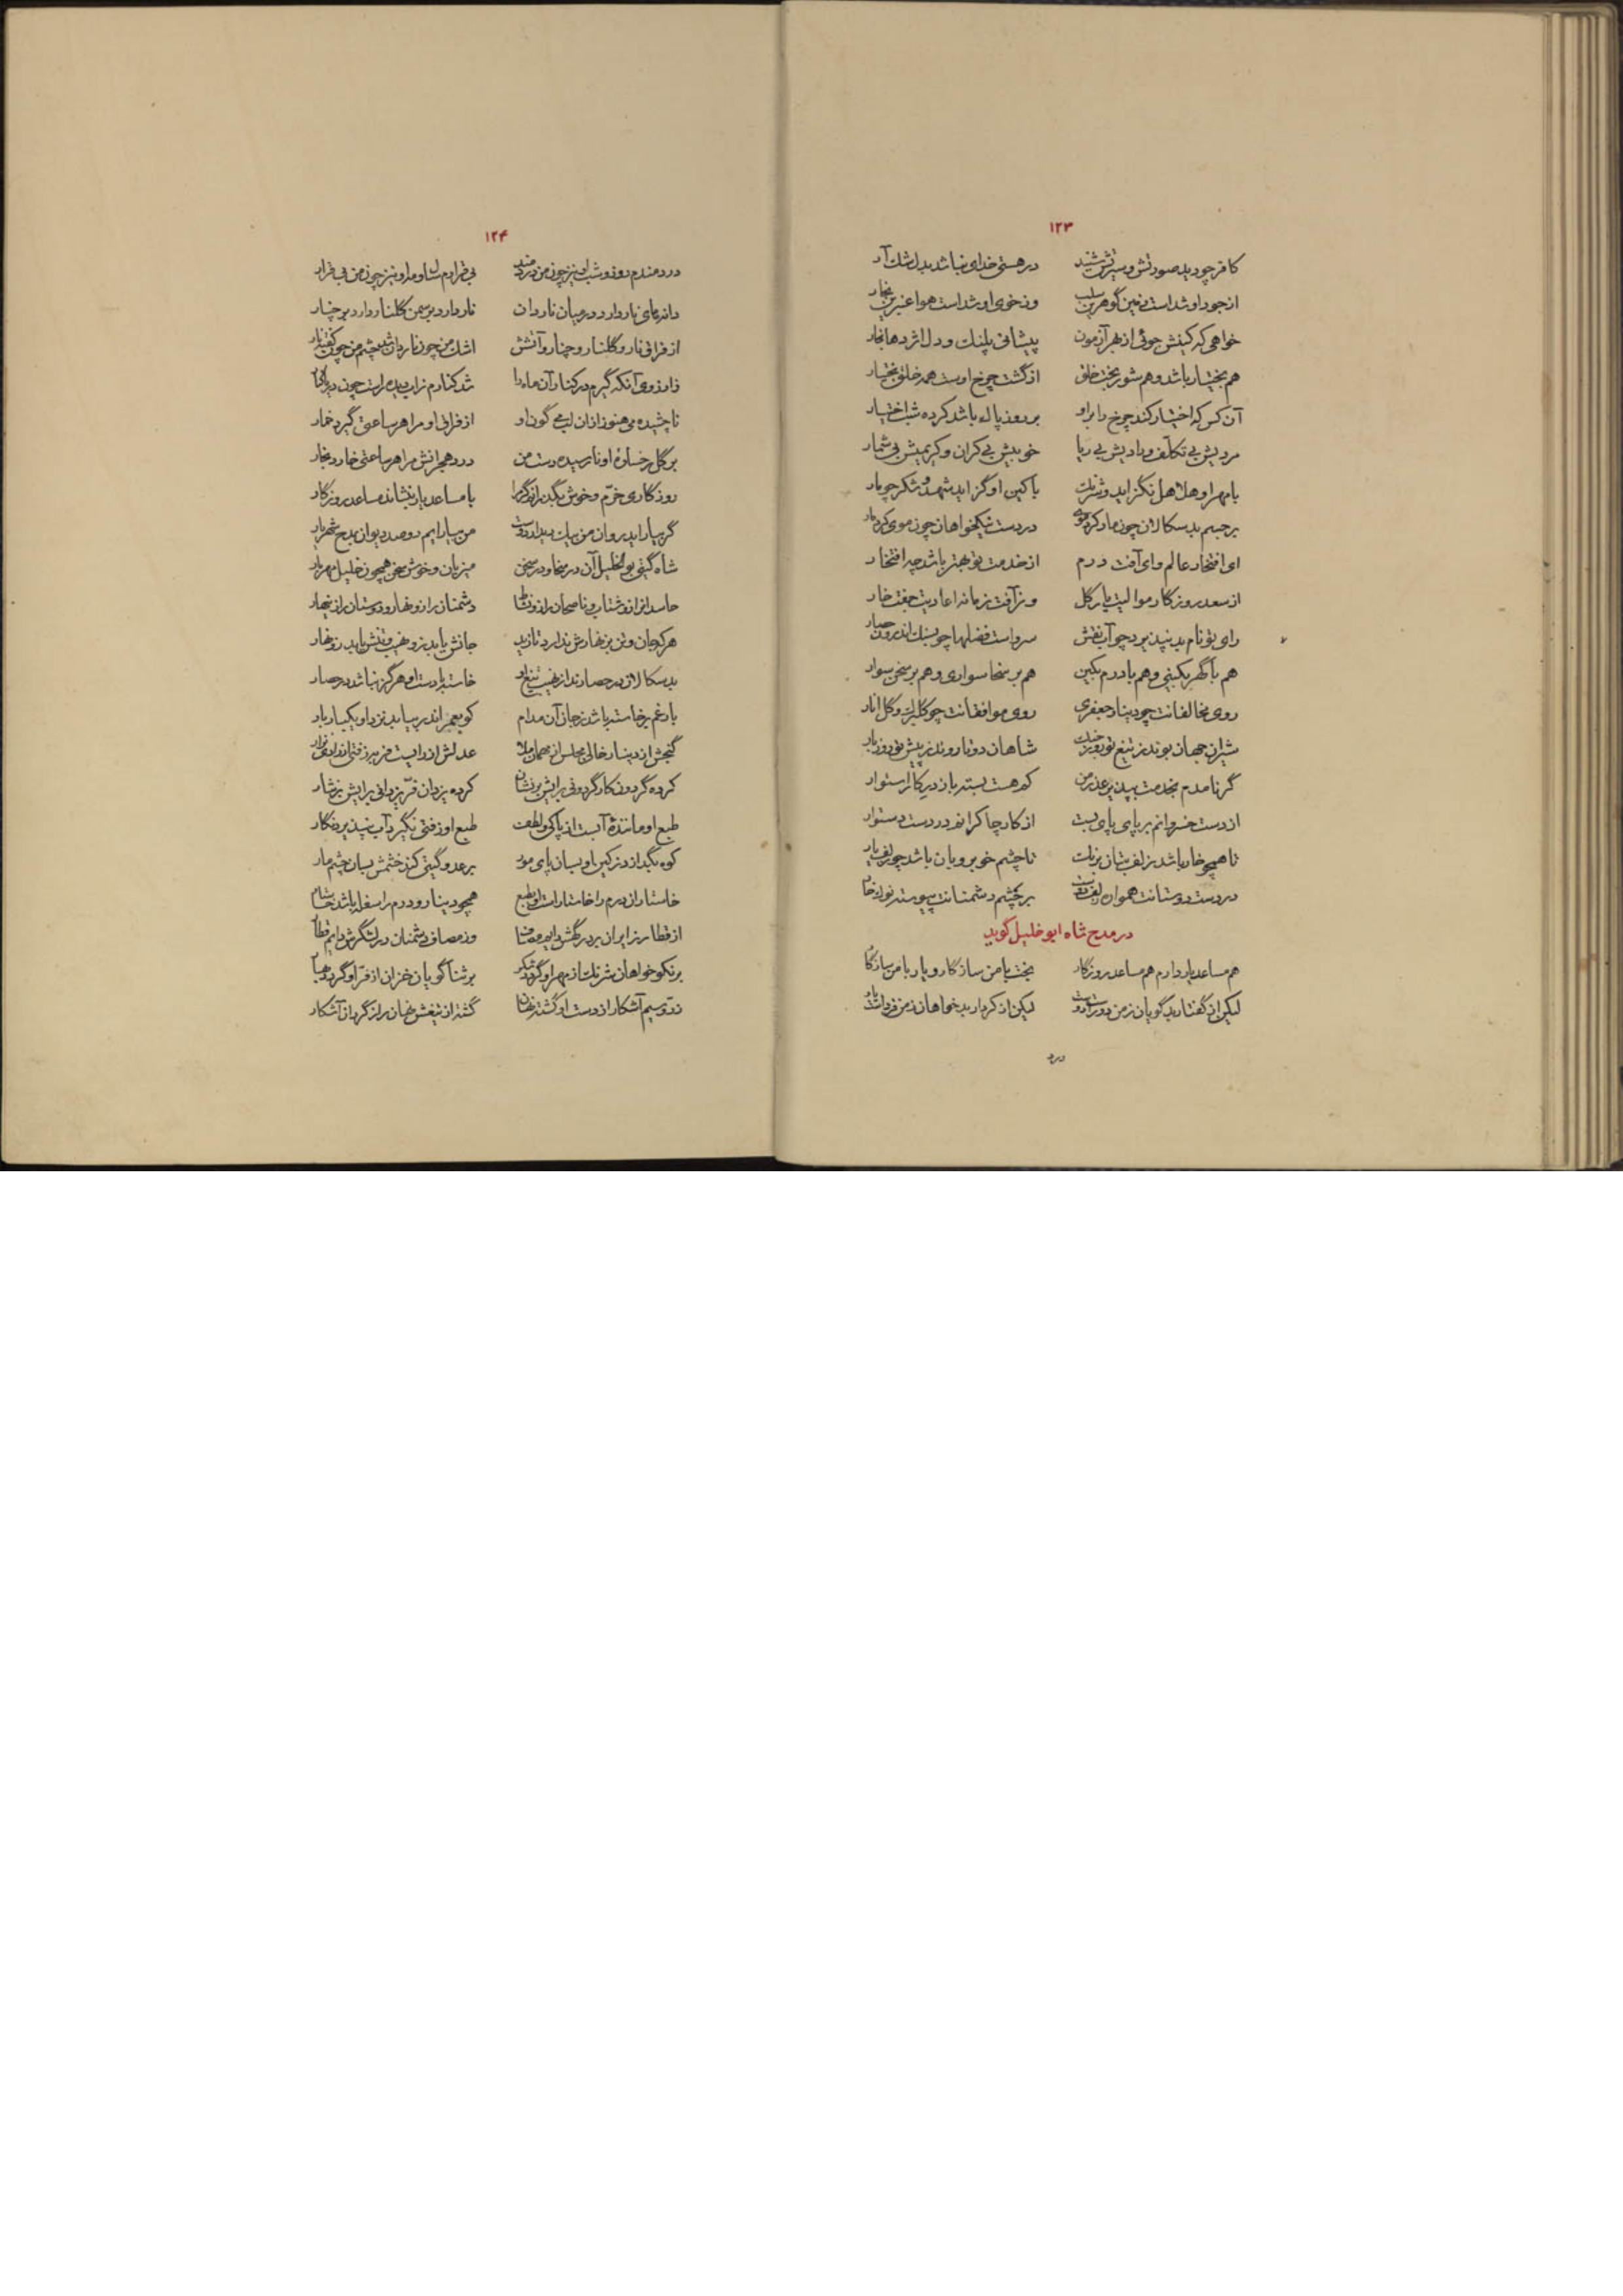 ۱۲۳
کافر چو دید صورتش و سیرتش شنید در هستی خدای نباشد بدلش
از جود او شداست زمین گوهرین سلب وز خوی او شداست هوا عنبرین بخار
خواهی که کینش جوئی از بهر آزمون پیشانی پلنک و دل اژدها بخار
هم بختیار باشد و هم شور بخت خلق از گشت چرخ اوست همه خلق بختیار
آن کس که اختیار کند چرخ را براو بر روز پاک باشد کرده شب اختیار
مردیش بی تکلف و رادیش بی ریا خوبیش بی کران و کریمیش بی شمار
با مهر او هلاهل نگزاید و شرنک با کین او گزاید شهد و شکر چو مار
بر جسم بدسکالان چون مار کرده موی در دست نیکخواهان چون موی کرده مار
ای افتخار عالم و ای آفت درم از خدمت تو بهتر باشد چه افتخار
از سعد روزکار موالیت یار کل وز آفت زمانه اعادیت جفت خار
رای تو نام بد نپذیرد چو آب نقش در و است فضلها چو بسنک اندرون
هم با گهر بکینی و هم با درم بکین هم بر سخا سواری و هم بر سخن سوار
روی مخالفانت چو دینار جعفری روی موافقانت چو گلبرک و گل انار
شیران جهان بوند ز تیغ تو روز جنک شاهان دوتا روند ز پیش تو روز بار
گر نامدم بخدمت بپذیر عذر من که هست بسته بازدر کار استوار
از دست خسروانم بر پای پای بست از کار چاکرانم در دست دستوار
تا همچو خار باشد زلف بتان برنک تا چشم خوبرویان باشد چو لف یار
در دست دوستانت همواره زلف دوست بر چشم دشمنانت پیوسته نوک خار
در مدح شاه ابو خلیل گوید
هم مساعد یار دارم هم مساعد روزگار بخت با من سازکار و یار با من سازگار
لیکن از گفتار بدگویان ز من دور است دوست لیکن از کردار بدخواهان ز من فرداست یار
درد
۱۲۴
دردمندم روز و شب او نیز چون من دردمند بی قرارم سال و مه او نیز چون من بی قرار
دانه‌های نار دارد در میان ناردان نار دارد بر سمن گلنار دارد بر چنار
از فراق نار و گلنار و چنار و آتشش اشک من چون ناردان شد چشم من چون کفته نار
ز آرزوی آنکه گیرم در کنار آن ماه را شد کنارم ز آب دیده راست چون دریا کنار
ناچشیده می هنوز از آن لب می گون او از فراق او مرا هر ساعتی گیرد خمار
بر گل رخساره او نارسیده دست من درد هجرانش مرا هر ساعتی خارد بخار
روزکاری خرم و خوش بگذراند گر مرا با مساعد یار بنشاند مساعد روزکار
گر بیاراید روان من بیک دیدار دوست من بیارایم دو صد دیوان بمدح شهریار
شاه گیتی بوالخلیل آن در سخا و در سخن میزبان و خوش سخن همچون خلیل مهریار
حاسدان را زو شتاب و ناصحان را زو نشاط دشمنان را زو نهار و دوستان را زینهار
هر که جان و تن بزنهارش ندارد تا زید جانش یابد زو نهیب و تنش یابد زو نهار
بدسکالان در حصارند از نهیب تیغ او خاسته با دست او هرگز نباشد در حصار
باد غم برخاسته باشد ز جان آن مدام کو بعمر اندر بیابد نزد او یکبار بار
گنجش از دینار خالی مجلس از مهمان ملا عدلش از دل ایست
کرده گردون کار گردونی برایش بر نشان کرده یزدان فر یزدانی برایش بر نثار
طبع او ماننده آبست از پاکی و لطف طبع او زفتی نگیرد آب نپذیرد نگار
کوه بگدازد ز کین او بسان پای مور بر عدو گیتی کند خشمش بسان چشم مار
خاستاران درم را خاستارست او بطبع همچو دینار و درم را سفله باشد خاستار
از قطار زایران بر درگهش دایم مصاف وز مصاف دشمنان در لشگرش دایم قطار
بر نکوخواهان شرنک از مهر او گردد شکر بر ثناگویان خزان از فر او گردد بهار
زر و سیم آشکار از دست او گشته نهان گشته از تیغش نهان راز گردان آشکار